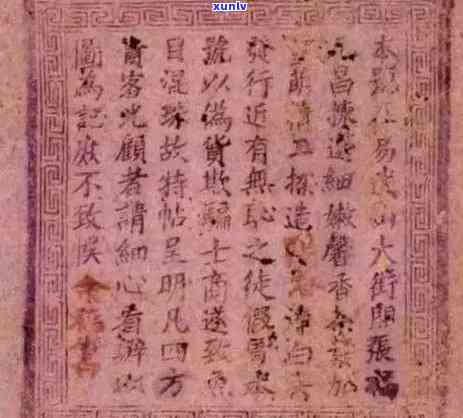 xunlv
本號在易武山大街開張福
元昌揀選細嫩馨香茶葉加
工揉造
發行近有無恥之徒假冒本
號以偽貨欺騙士商遂致魚
目混珠故特帖呈明凡四方
貴客光顧者請細心看辨以
圖為記庶不致誤 余福生